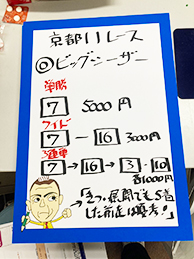 京都11レース
◎ビッグシーザー
単勝
7 5000円
ワイド
7 ー 16 3000円
3連単
7 → 16 → 3・10
各1000円
「キツイ展開でも5着
した前走は優秀!」